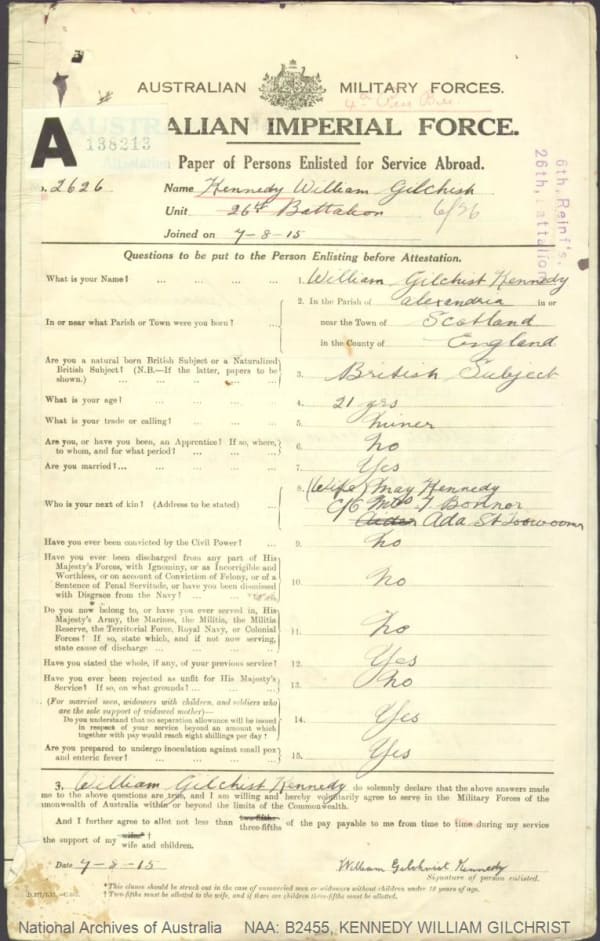 AUSTRALIAN MILITARY FORCES.
AUSTRALIAN IMPERIAL FORCE.
A
138213
Attestation Paper of Persons Enlisted for Service Abroad.
o. 2626 Name Kennedy William Gilchist
Unit 26th Battalion 6/26
Joined on 7-8-15
6th. Reinf's.
26th. Battalion
Questions to be put to the Person Enlisting before Attestation.
What is your Name? ... ... ... ... 1. William Gilchist Kennedy
In or near what Parish or Town were you born? ... 2. In the Parish of alexandria in or
near the Town of Scotland
in the County of England
Are you a natural born British Subject or a Naturalized
British Subject? (N.B.—If the latter, papers to be
shown.) ... ... ... ... 3. British Subject
What is your age? ... ... ... ... 4. 21 yrs
What is your trade or calling? ... ... ... 5. miner
Are you, or have you been, an Apprentice? If so, where,
to whom, and for what period? ... ... ... 6. no
Are you married?... ... ... ... 7. Yes
Who is your next of kin? (Address to be stated) ... 8. (Wife) May Kennedy
C/o Mrs. T Bonnor
Ada St Toowoomba
Have you ever been convicted by the Civil Power? ... 9. no
Have you ever been discharged from any part of His
Majesty's Forces, with Ignominy, or as Incorrigible and
Worthless, or on account of Conviction of Felony, or of a
Sentence of Penal Servitude, or have you been dismissed
with Disgrace from the Navy? ... ... 10. no
Do you now belong to, or have you ever served in, His
Majesty's Army, the Marines, the Militia, the Militia
Reserve, the Territorial Force, Royal Navy, or Colonial
Forces? If so, state which, and if not now serving,
state cause of discharge ... ... ... 11. no
Have you stated the whole, if any, of your previous service? 12. Yes
Have you ever been rejected as unfit for His Majesty's
Service? If so, on what grounds? ... ... ... 13. no
(For married men, widowers with children, and soldiers who
are the sole support of widowed mother)—
Do you understand that no separation allowance will be issued
in respect of your service beyond an amount which
together with pay would reach eight shillings per day? 14. Yes
Are you prepared to undergo inoculation against small pox
and enteric fever? ... ... ... ... 15. Yes
3. William Gilchist Kennedy do solemnly declare that the above answers made
me to the above questions are true, and I am willing and hereby voluntarily agree to serve in the Military Forces of the
mmonwealth of Australia within or beyond the limits of the Commonwealth.
And I further agree to allot not less than two-fifths
three-fifths of the pay payable to me from time to time during my service
the support of my wife* † wife and children.
Date 7-8-15 William Gilchrist Kennedy
Signature of person enlisted.
* This clause should be struck out in the case of unmarried men or widowers without children under 18 years of age.
† Two-fifths must be allotted to the wife, and if there are children three-fifths must be allotted.
National Archives of Australia NAA: B2455, KENNEDY WILLIAM GILCHRIST